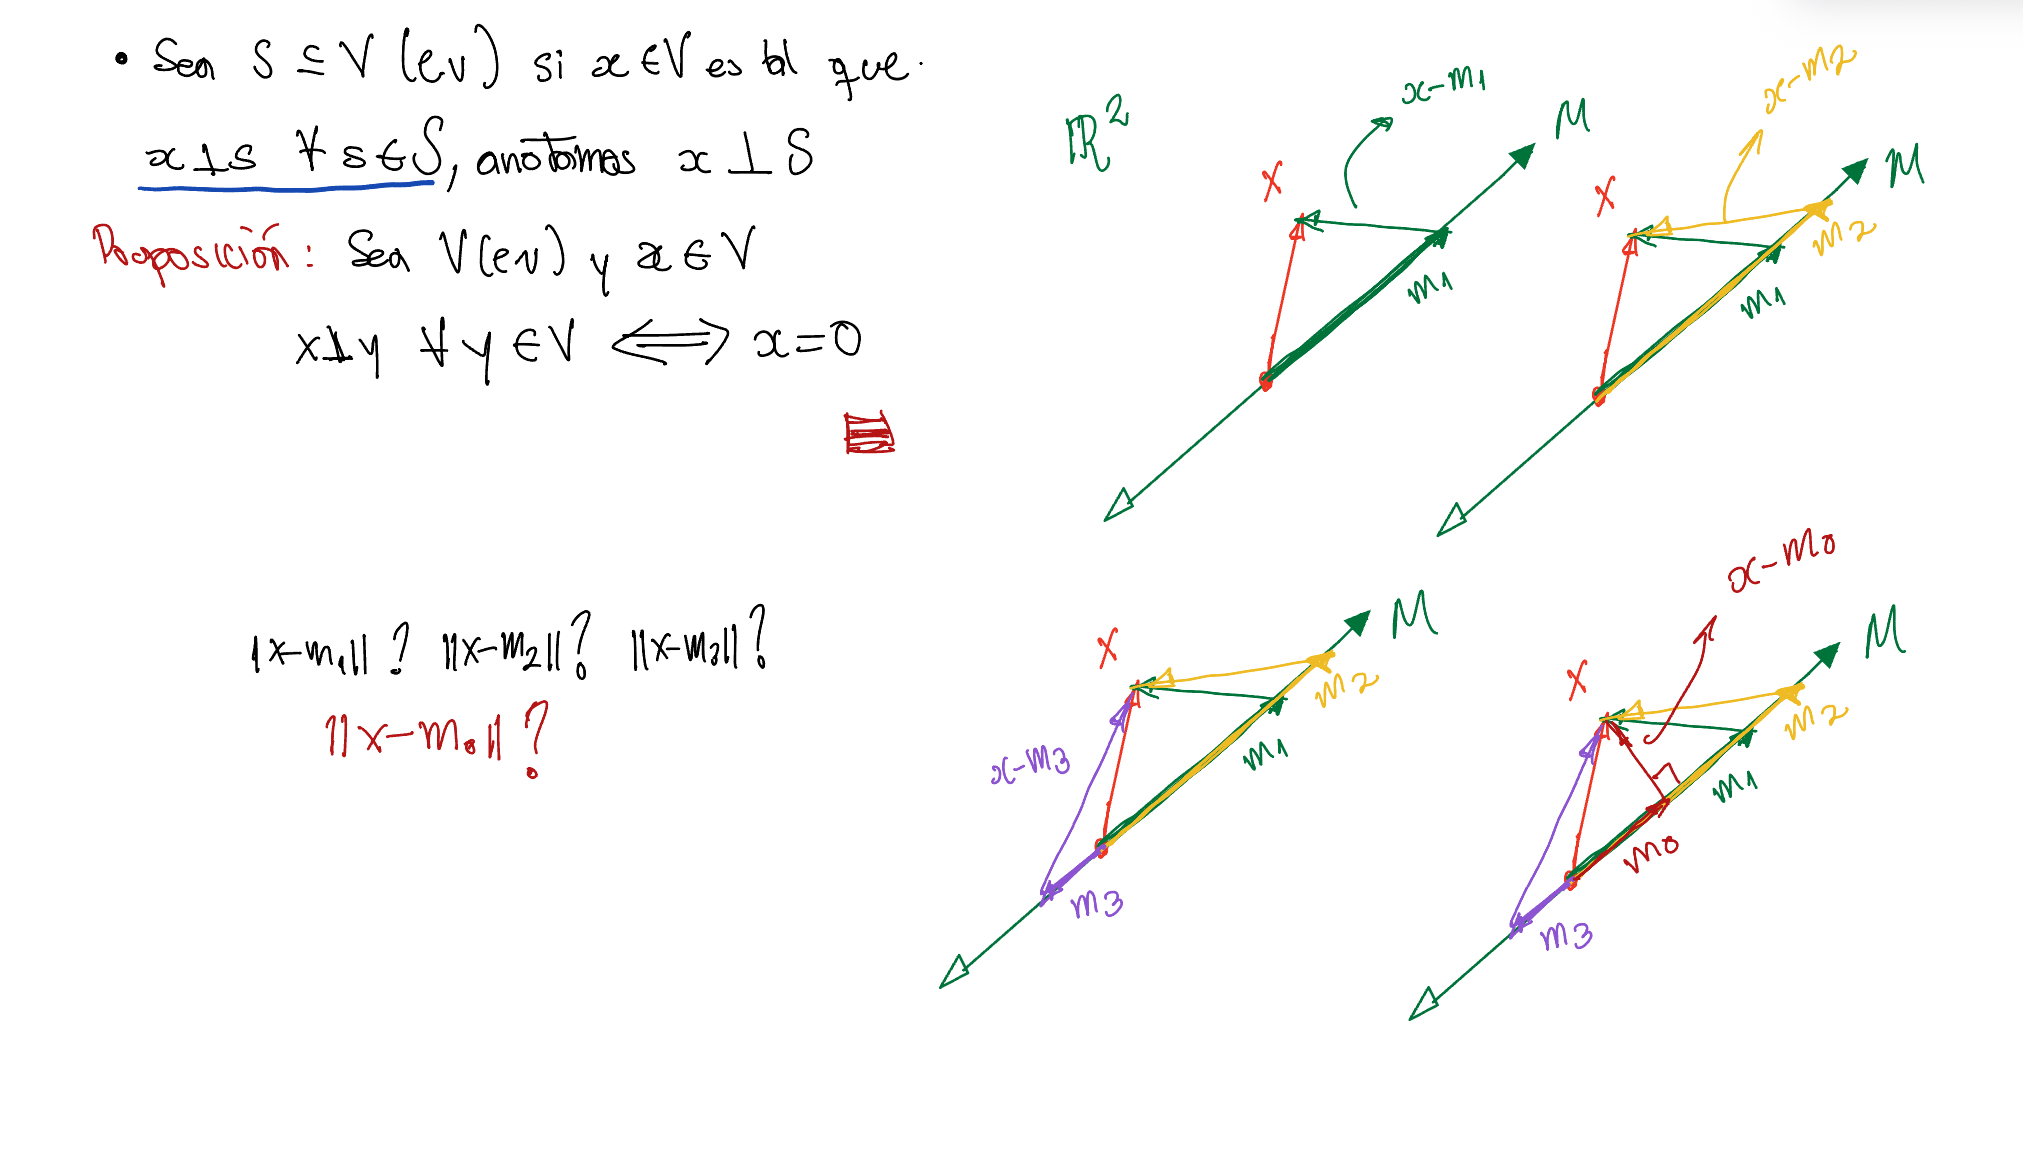 • Sea S ⊆ V (ev) si x ∈ V es tal que.
x ⊥ s ∀ s ∈ S, anotamos x ⊥ S
Proposición: Sea V (ev) y x ∈ V
x ⊥ y ∀ y ∈ V ⟺ x = 0
|x-m₁|| ? ||x-m₂||? ||x-m₃||?
||x-m₀|| ?
ℝ²
x-m₁
M
X
m₁
x-m₂
M
X
m₂
m₁
M
X
m₂
m₁
x-m₃
m₃
x-m₀
M
X
m₂
m₁
m₀
m₃